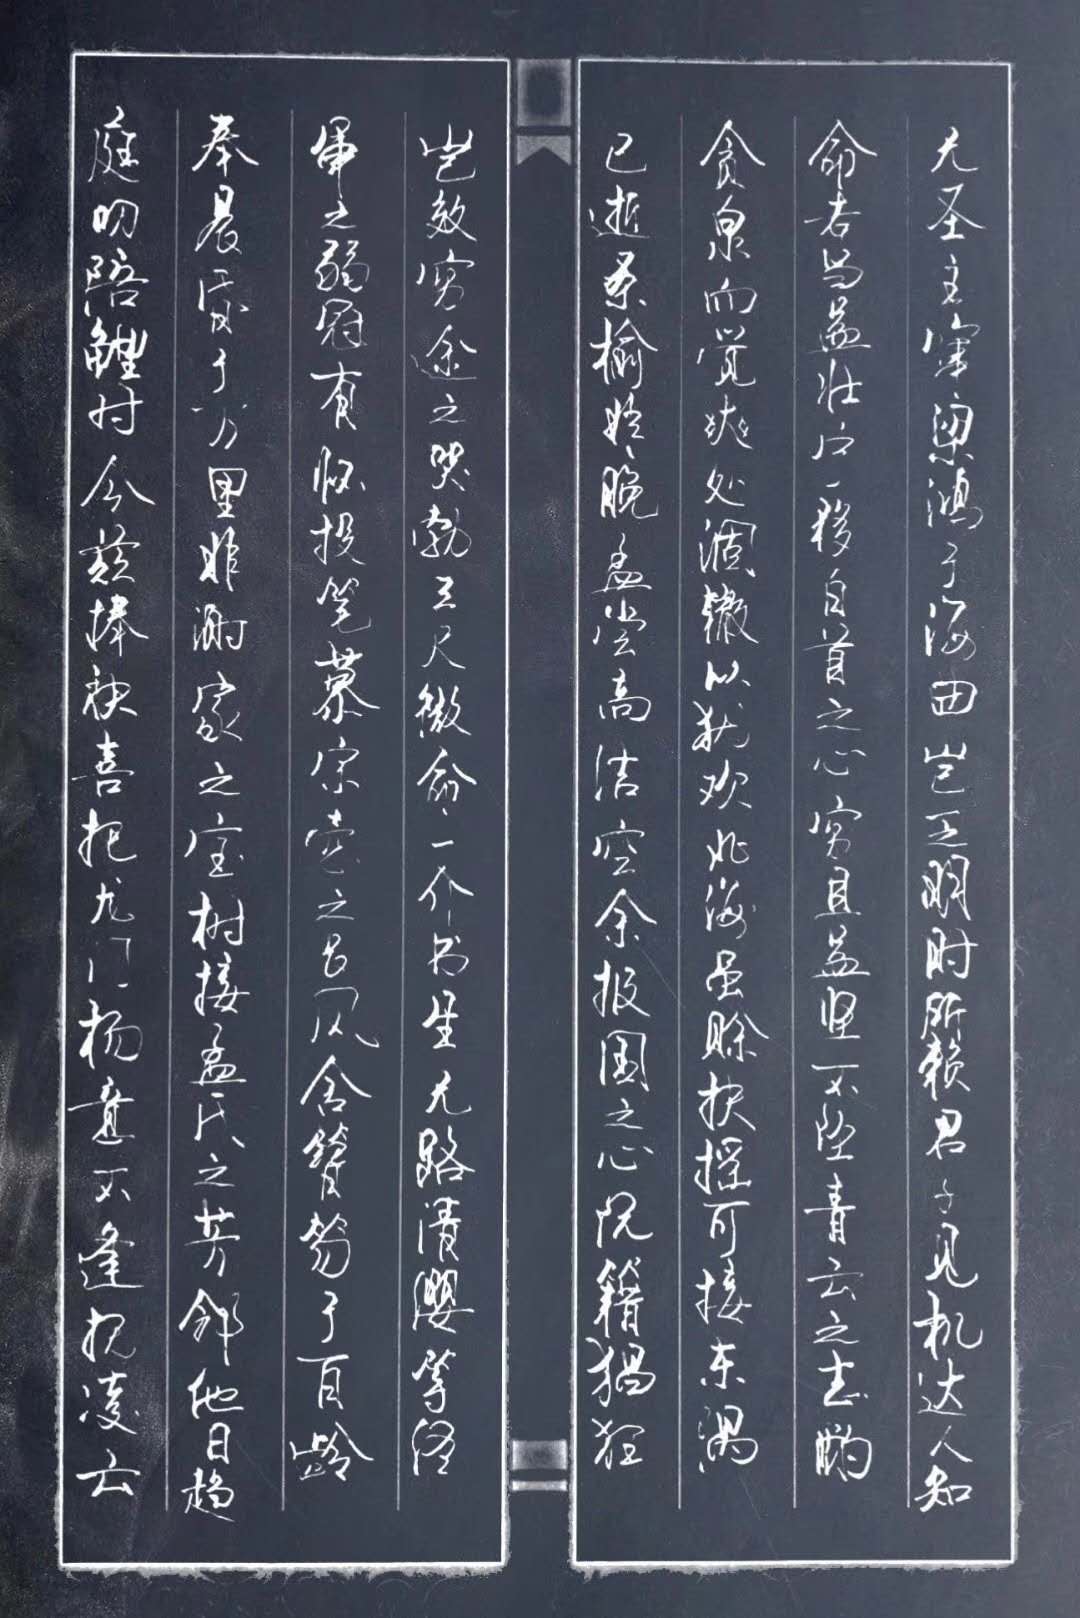 无圣主窜梁鸿于海曲岂乏明时所赖君子见机达人知
命老当益壮宁移白首之心穷且益坚不坠青云之志酌
贪泉而觉爽处涸辙以犹欢北海虽赊扶摇可接东隅
已逝桑榆非晚孟尝高洁空余报国之心阮籍猖狂
岂效穷途之哭勃三尺微命一介书生无路请缨等终
军之弱冠有怀投笔慕宗悫之长风舍簪笏于百龄
奉晨昏于万里非谢家之宝树接孟氏之芳邻他日趋
庭叨陪鲤对今兹捧袂喜托龙门杨意不逢抚凌云